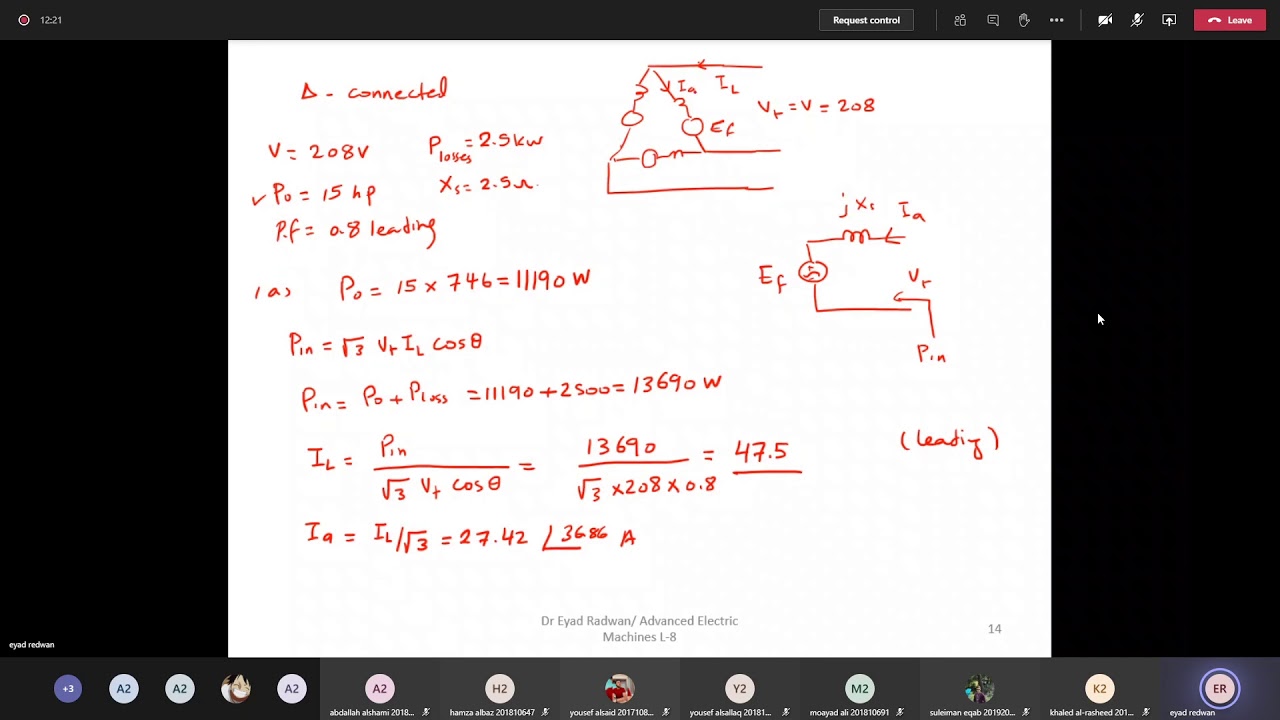 12:21
Request control
Leave
Δ - connected
V = 208V
P losses = 2.5kw
Po = 15 hp
Xs = 2.5Ω
P.f = 0.8 leading
Ia
IL
Ef
Vt = V = 208
jXs
Ia
Ef
Vt
Pin
(a) Po = 15 × 746 = 11190 W
Pin = √3 Vt IL cosθ
Pin = Po + Ploss = 11190 + 2500 = 13690 W
IL = Pin / √3 Vt cosθ = 13690 / √3 × 208 × 0.8 = 47.5
(leading)
Ia = IL/√3 = 27.42 ∠3686 A
Dr Eyad Radwan/ Advanced Electric
Machines L-8
14
eyad redwan
+3
A2
A2
A2
A2
H2
Y2
M2
K2
ER
abdallah alshami 2018...
hamza albaz 201810647
yousef alsaid 2017108...
yousef alsallaq 20181...
moayad ali 201810691
suleiman eqab 201920...
khaled al-rasheed 201...
eyad redwan